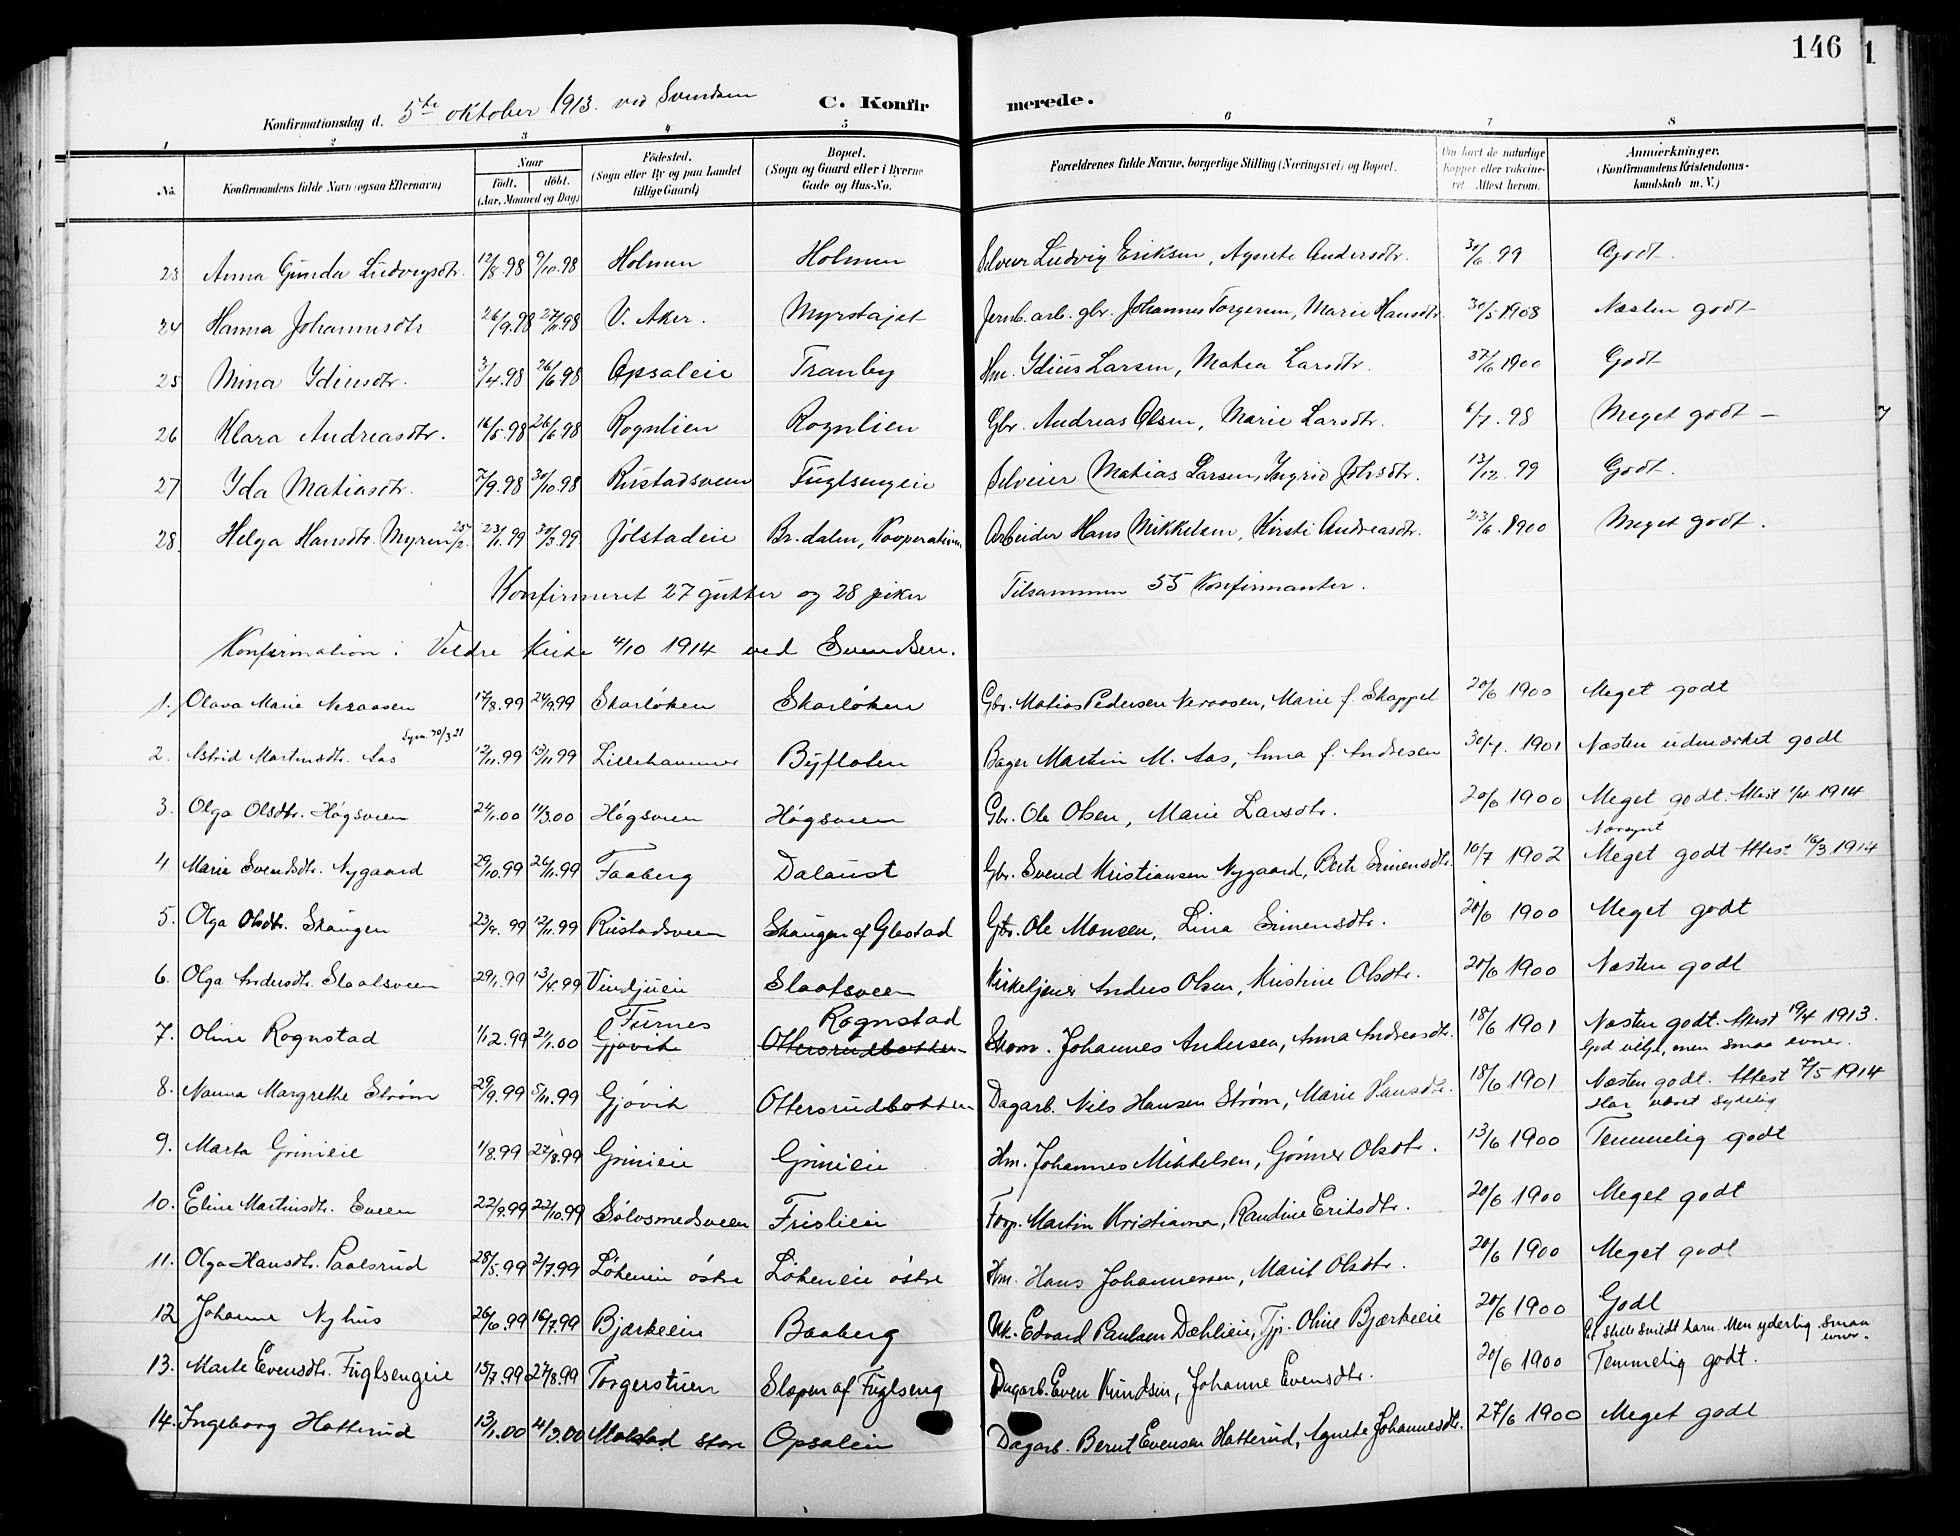 146
Konfirmationsdag d. 5te oktober 1913. ved Svendsen C. Konfirmerede.
1 2 3 4 5 6 7 8
No. Konfirmandens fulde Navn (ogsaa Efternavn) Naar født, døbt. (Aar, Maaned og Dag) Fødested. (Sogn eller By og paa Landet tillige Gaard) Bopæl. (Sogn og Gaard eller i Byerne Gade og Hus-No. Forældrenes fulde Navne, borgerlige Stilling (Næringsvei) og Bopæl. Om havt de naturlige Kopper eller vakcineret Attest herom. Anmærkninger. (Konfirmandens Kristendomskundskab m. V.)
23 Anna Gunda Ludvigsdtr. 12/8.98 9/10.98 Holmen Holmen Selveier Ludvig Eriksen, Agnete Andersdtr. 30/6.99 Godt.
24 Hanna Johannesdtr 26/9.98 27/11.98 V. Aker. Myrstajet Jernb. arb. gbr. Johannes Torgersen, Marie Hansdtr. 30/5 1908 Næsten godt
25 Mina Idiusdtr. 3/4.98 26/6 98 Opsaleie Tranby Hm. Idius Larsen, Matea Larsdtr. 27/6 1900 Godt
26 Klara Andreasdtr. 16/5.98 26/6 98 Rognlien Rognlien Gbr. Andreas Olsen, Marie Larsdtr. 6/7.98 Meget godt –
27 Ida Matiasdtr. 7/9.98 30/10.98 Rustadsveen Fuglsengeie Selveier Matias Larsen, Ingrid Johsdtr. 13/12.99 Godt.
28 Helga Hansdtr. Myren 23/1.99 30/3.99 Jølstadeie Br. dalen, Kooperationen Arbeider Hans Mikkelsen, Kirsti Andreasdtr. 23/6.1900 Meget godt.
Konfirmeret 27 gutter og 28 piker Tilsammen 55 Konfirmanter.
Konfirmation i Veldre Kirke 4/10 1914 ved Svendsen.
1. Olava Marie Neraasen 17/8.99 24/9.99 Skarløken Skarløken Gbr. Matias Pedersen Neraasen, Marie f. Skappel 20/6 1900 Meget godt
2. Astrid Martinsdtr. Aas 12/11.99 13/11 99 Lillehammer Byfloten Bager Martin M. Aas, Anna f. Andresen 30/4. 1901 Næsten udmærket godt
3. Olga Olsdtr. Høgsveen 24/1.00 11/3.00 Høgsveen Høgsveen Gbr. Ole Olsen, Marie Larsdtr. 20/6 1900 Meget godt. Attest 1/4 1914
Nærsynt
4. Marie Svendsdtr. Nygaard 29/10.99 26/11.99 Faaberg Dalaust Gbr. Svend Kristiansen Nygaard, Berte Simensdtr. 10/7 1902 Meget godt Attest 16/3 1914
5. Olga Olsdtr. Skaugen 23/9. 99 12/11.99 Rustadsveen Skaugen af Glestad Gbr. Ole Monsen, Lina Simensdtr. 20/6 1900 Meget godt
6. Olga Andersdtr. Slaatsveen 29/1.99 13/4.99 Vindjueie Slaatsveen Kirketjener Anders Olsen, Kristine Olsdtr. 20/6 1900 Næsten godt
Furnes Rognstad
7. Oline Rognstad 1/12.99 21/1.00 Gjøvik Ottersrudbakken Skom. Johannes Andersen, Anna Andreasdtr. 18/6 1901 Næsten godt. Attest 19/4 1913.
God vilje, men smaa evner.
8. Nanna Margrethe Strøm 29/9.99 5/11.99 Gjøvik Ottersrudbakken Dagarb. Nils Hansen Strøm, Marie Hansdtr. 18/6 1901 Næsten godt. Attest 7/5 1914
Har været sydelig
9. Marta Grinieie 1/8.99 27/8.99 Grinieie Grinieie Hm. Johannes Mikkelsen, Gunner Olsdtr. 13/6 1900 Temmelig godt
10. Eline Martinsdtr. Sveen 22/9.99 22/10.99 Sølvsmedsveen Frislieie Forp. Martin Kristiansen, Randine Eriksdtr. 20/6 1900 Meget godt
11. Olga Hansdtr. Paalsrud 28/5.99 2/7.99 Løkeneie østre Løkeneie østre Hm. Hans Johannessen, Marit Olsdtr. 20/6 1900 Meget godt
12 Johanne Nyhus 26/6.99 16/7.99 Bjærkeeie Baaberg Uk. Edvard Paulsen Dæhlieie, Tjp. Oline Bjærkeeie 20/6 1900 Godt
Et skik snildt barn. Men yderlig smaa evner.
13. Marte Evensdtr. Fuglsengeie 15/7.99 27/8.99 Torgerstuen Slapen af Fuglseng Dagarb. Even Knudsen, Johanne Evensdtr. 20/6 1900 Temmelig godt.
14. Ingeborg Hatterud 13/1.00 4/3.00 Molstad store Opsaleie Dagarb. Bernt Evensen Hatterud, Agnete Johannesdtr. 27/6 1900 Meget godt